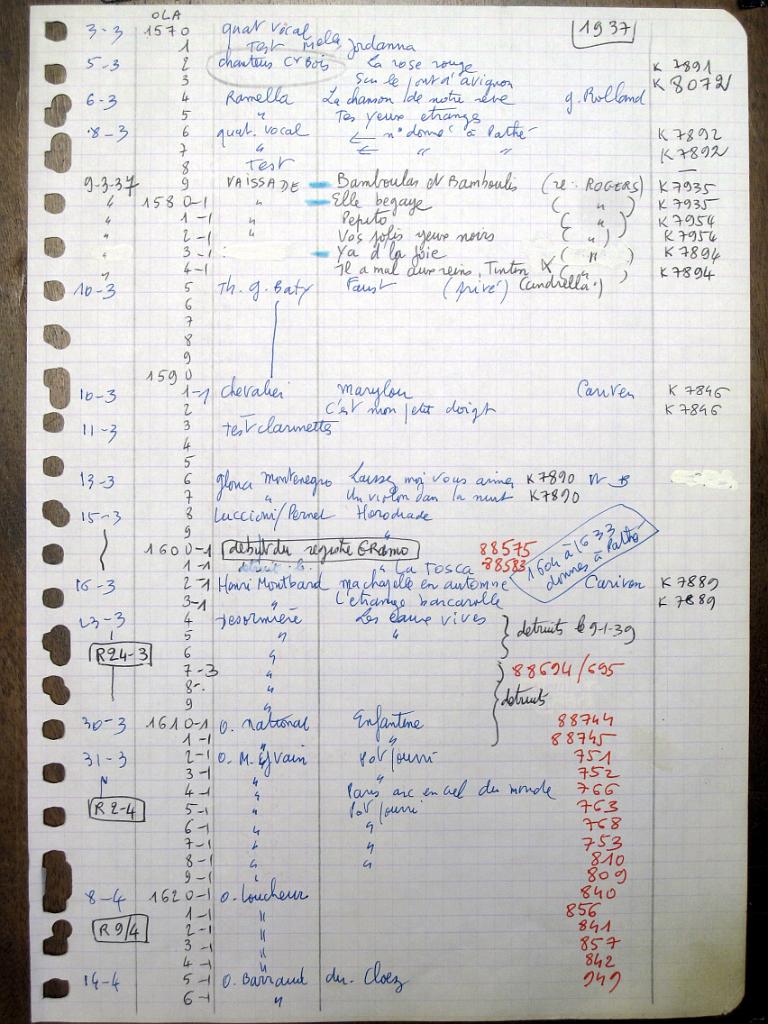 OLA
3-3 1570 quat vocal 1937
1 Test Mela Jordanna
5-3 2 chanteurs Cx Bois La rose rouge K 7891
3 Sur le pont d'avignon K 8072
6-3 4 Ramella La chanson de notre rêve g. Rolland
5 " Tes yeux etranges
8-3 6 quat. vocal ← n° donné à Pathé K 7892
7 " ← " " K 7892
8 Test —
9-3-37 9 VAISSADE Bamboulas et Bamboulis (re: ROGERS) K 7935
" 1580-1 " Elle begaye ( " ) K 7935
" 1-1 " Pepito ( " ) K 7954
" 2-1 " Vos jolis yeux noirs ( " ) K 7954
" 3-1 Ya d la joie ( " ) K 7894
" 4-1 Il a mal aux reins, Tintin X ( " ) K 7894
10-3 5 Th. g. Baty Faust (privé) (Candrella)
6
7
8
9
1590
10-3 1-1 Chevalier Marylou Cariven K 7846
2 C'est mon petit doigt K 7846
11-3 3 Test clarinettes
4
5
13-3 6 gloria Montenegro Laissez moi vous aimer K 7890
7 " Un violon dans la nuit K 7890
15-3 8 Luccioni/Pernet Herodiade
9 "
1600-1 debut du registe GRamo 88575
1-1 " La Tosca 88583
1604 à 1633 donnés à Pathé
16-3 2-1 Henri Montbard ma chapelle en automne Cariven K 7889
3-1 " L'etrange barcarolle K 7889
23-3 4 Desormière Les eaux vives
5 " " detruits le 9-1-39
R24-3 6 "
7-3 " 88694/695
8-. " detruits
9 "
30-3 1610-1 O. National Enfantine 88744
1-1 " " 88745
31-3 2-1 O. M. Yvain Pot pourri 751
3-1 " " 752
4-1 " Paris arc en ciel du monde 766
R 2-4 5-1 " Pot pourri 763
6-1 " " 768
7-1 " " 753
8-1 " " 810
9-1 " 809
8-4 1620-1 O. Loucheur 840
1-1 " 856
R 9/4 2-1 " 841
3-1 " 857
4-1 " 842
14-4 5-1 O. Barraud du. Cloez 949
6-1 "